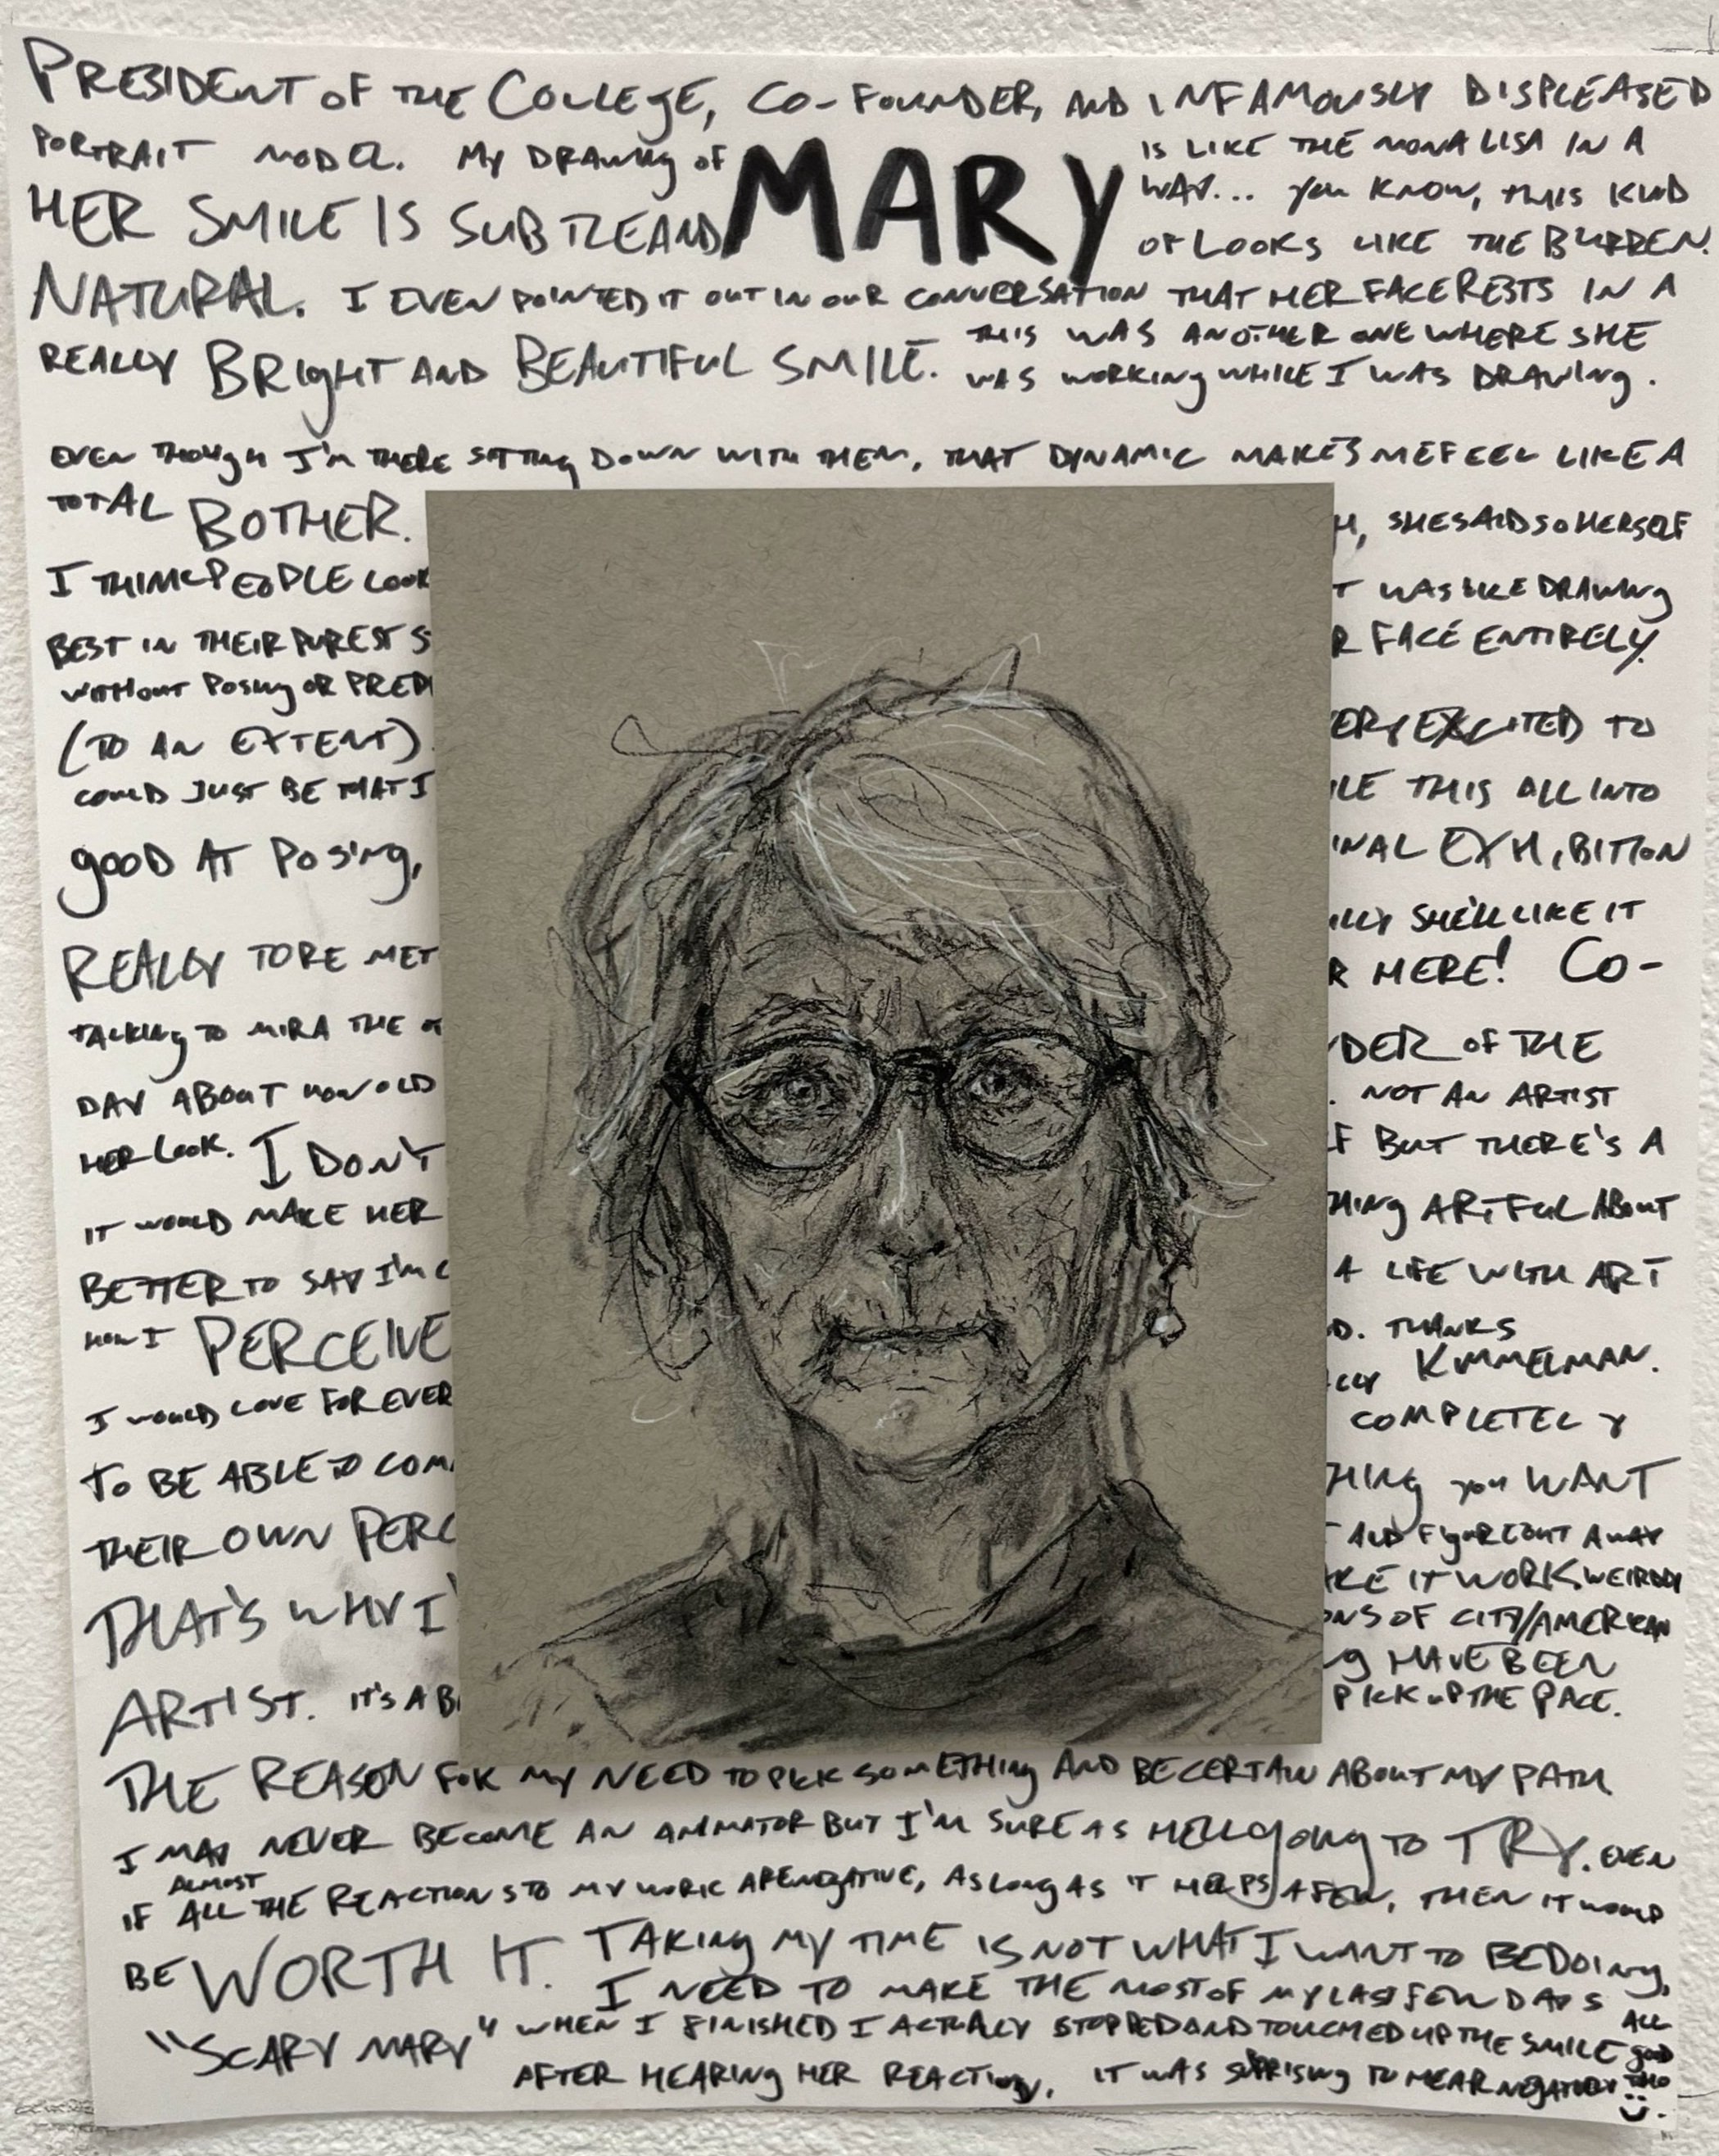 PRESIDENT OF THE COLLEGE, CO-FOUNDER, AND INFAMOUSLY DISPLEASED
PORTRAIT MODEL. MY DRAWING OF MARY IS LIKE THE MONA LISA IN A
WAY... YOU KNOW, THIS KIND
HER SMILE IS SUBTLE AND OF LOOKS LIKE THE BURREN.
NATURAL. I EVEN POINTED IT OUT IN OUR CONVERSATION THAT HER FACE RESTS IN A
REALLY BRIGHT AND BEAUTIFUL SMILE. THIS WAS ANOTHER ONE WHERE SHE
WAS WORKING WHILE I WAS DRAWING.
EVEN THOUGH I'M THERE SITTING DOWN WITH THEM, THAT DYNAMIC MAKES ME FEEL LIKE A
TOTAL BOTHER.
I THINK PEOPLE LOOK
BEST IN THEIR PUREST S
WITHOUT POSING OR PRED
(TO AN EXTENT)
COULD JUST BE THAT I
GOOD AT POSING,
REALLY TORE MET
TALKING TO MIRA THE
DAY ABOUT HOW OLD
HER LOOK. I DON'T
IT WOULD MAKE HER
BETTER TO SAY I'M
HOW I PERCEIVE
I WOULD LOVE FOR EVER
TO BE ABLE TO COM
THEIR OWN PERC
THAT'S WHY I'
ARTIST. IT'S A B
H, SHE SAID SO HERSELF
T WAS LIKE DRAWING
R FACE ENTIRELY.
ERY EXCITED TO
ILE THIS ALL INTO
INAL EXHIBITION
LLY SHE'LL LIKE IT
R HERE! CO-
DER OF THE
. NOT AN ARTIST
F BUT THERE'S A
HING ARTFUL ABOUT
A LIFE WITH ART
D. THANKS
KIMMELMAN.
COMPLETELY
THING YOU WANT
T AND FIGURE OUT A WAY
AKE IT WORK, WEIRDLY
ONS OF CITY/AMERICAN
G HAVE BEEN
PICK UP THE PACE.
THE REASON FOR MY NEED TO PICK SOMETHING AND BE CERTAIN ABOUT MY PATH
I MAY NEVER BECOME AN ANIMATOR BUT I'M SURE AS HELL GOING TO TRY. EVEN
IF ALMOST ALL THE REACTIONS TO MY WORK ARE NEGATIVE, AS LONG AS IT HELPS A FEW, THEN IT WOULD
BE WORTH IT. TAKING MY TIME IS NOT WHAT I WANT TO BE DOING,
I NEED TO MAKE THE MOST OF MY LAST FEW DAYS
"SCARY MARY" WHEN I FINISHED I ACTUALLY STOPPED AND TOUCHED UP THE SMILE
AFTER HEARING HER REACTION. IT WAS SURPRISING TO HEAR NEGATIVITY
ALL
GOOD
THO